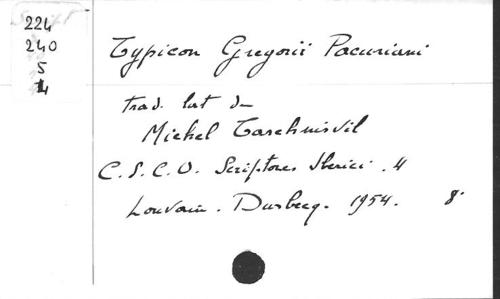 224
240
5
4
Typicon Gregorii Pacuriani
trad. lat de
Michel Tarchnisvil
C.S.C.O. Scriptores Iberici . 4
Louvain. Durbecq. 1954. 8°